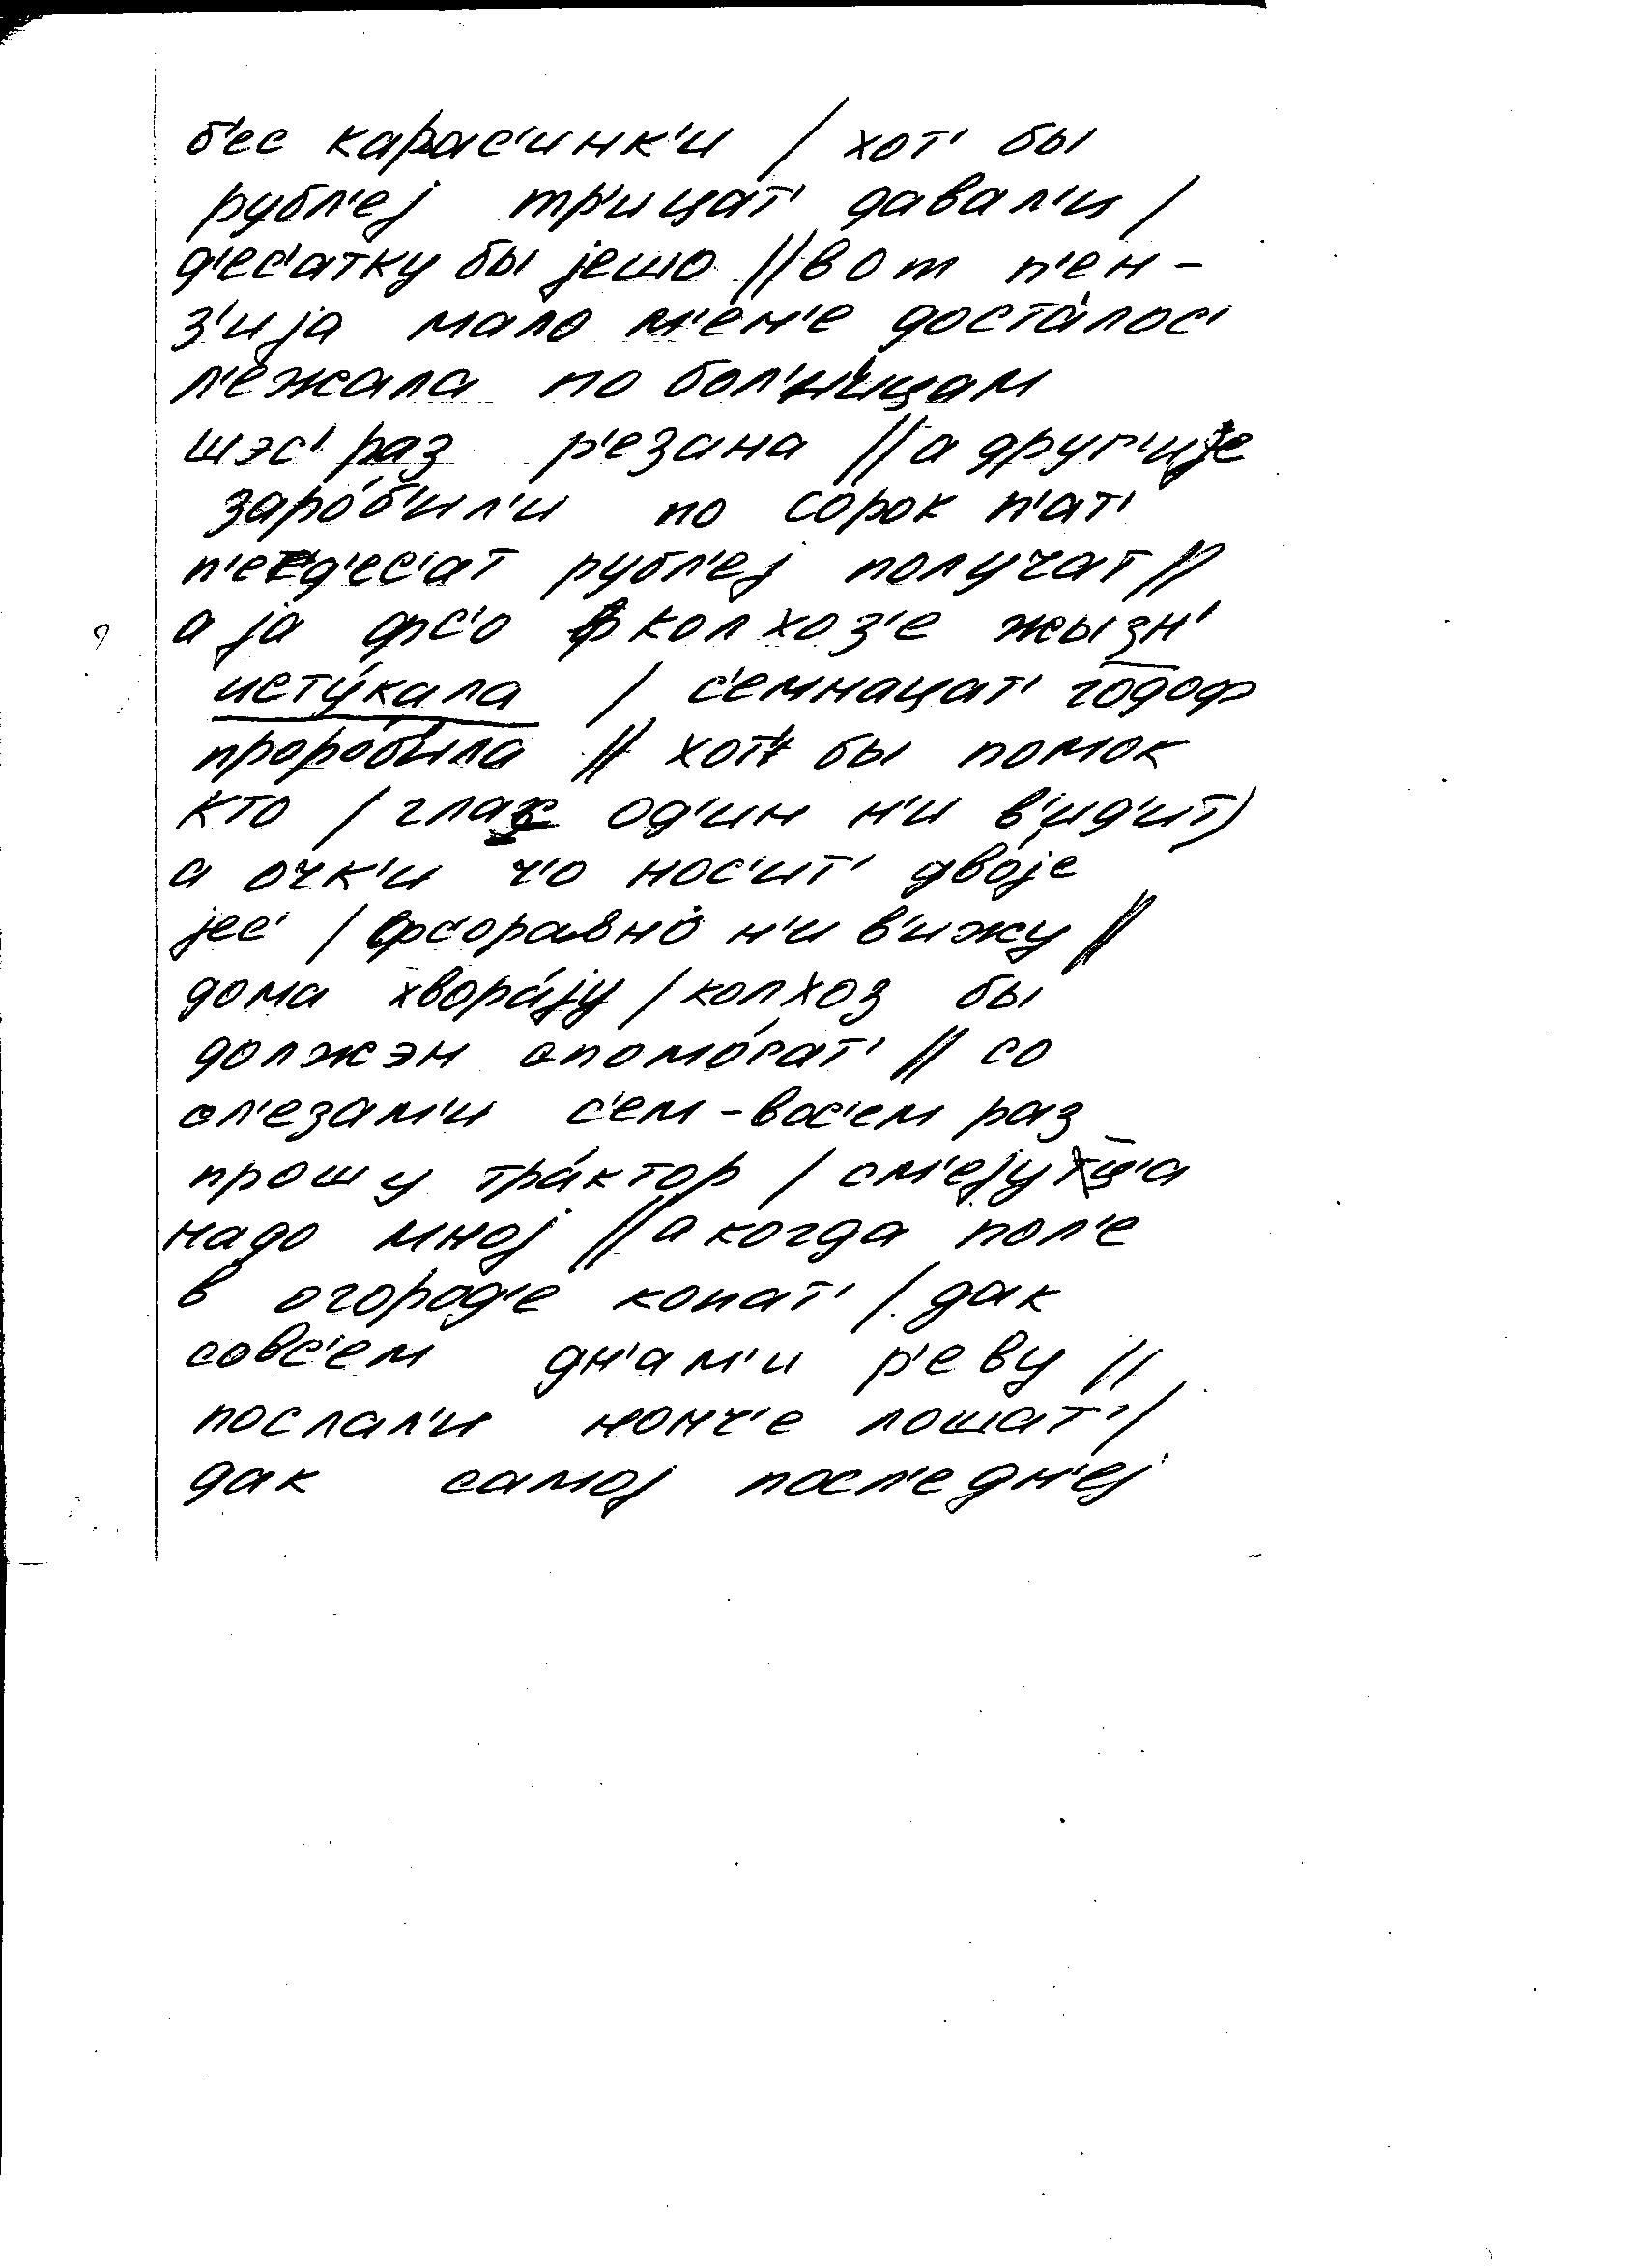 б'ес карас'инк'и / хот' бы
рубл'еј тр'ицат' давал'и /
д'ес'атку бы јешо // вот п'ен-
з'ија мало м'ен'е доста́лос'
л'ежала по бол'н'ицам
шэс' раз р'езана // а друг'ије
заро́б'ил'и по сорок п'ат'
п'ед'ес'ат рубл'еј получат //
а ја фс'о в колхоз'е жызн'
исту́кала / с'емнацат' годоф
проро́б'ила // хот' бы помок
кто / глаз од'ин н'и в'ид'ит /
а очк'и ч'о нос'ит' двоје
јес' / фсоравно́ н'и в'ижу //
дома хвора́ју / колхоз бы
должэн опомо́гат' // со
сл'езам'и с'ем-вос'ем раз
прошу тра́ктор / см'ејуц'а
надо мној // а когда пол'е
в огород'е копат' / дак
совс'ем дн'ам'и р'еву //
послал'и нонч'е лошат' /
дак самој посл'едн'еј